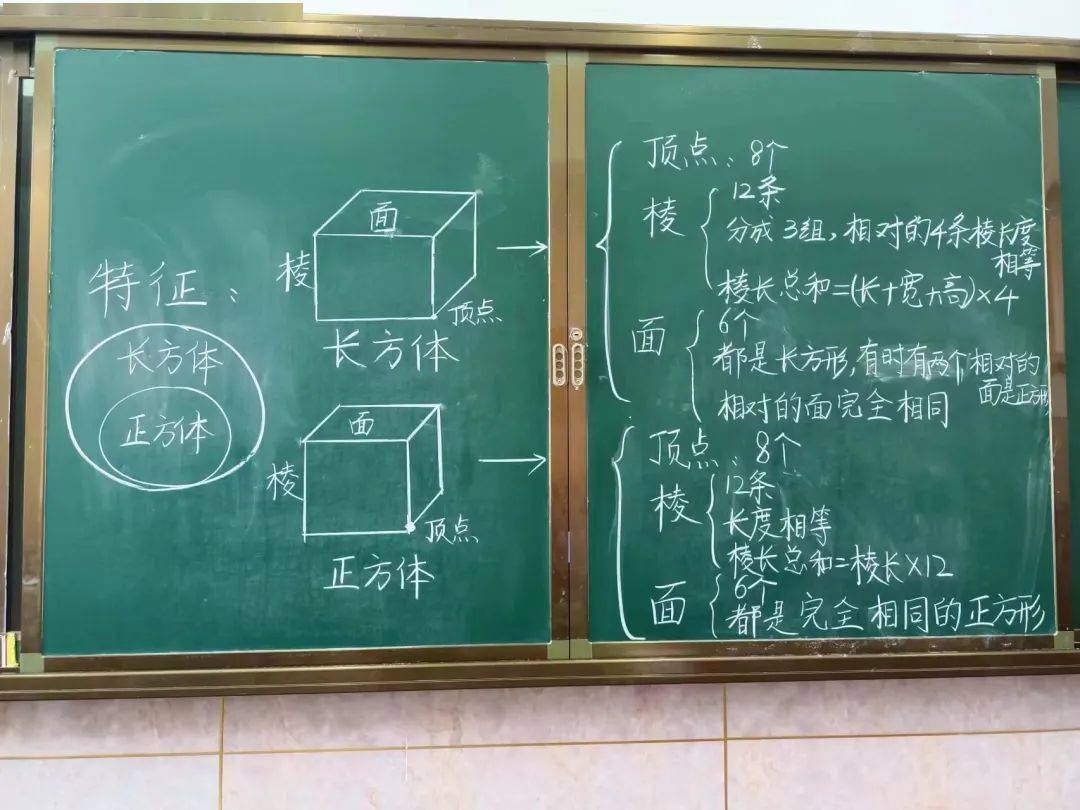 特征：
长方体
正方体
面
棱
顶点
长方体
面
棱
顶点
正方体
顶点：8个
棱
12条
分成3组，相对的4条棱长度
相等
棱长总和=(长+宽+高)×4
面
6个
都是长方形，有时有两个相对的
面是正方形
相对的面完全相同
顶点：8个
棱
12条
长度相等
棱长总和=棱长×12
面
6个
都是完全相同的正方形